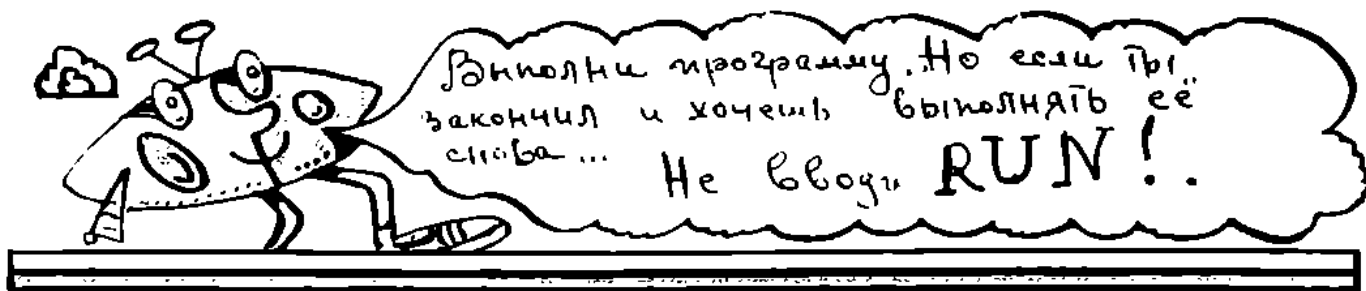 Выполни программу. Но если ты
закончил и хочешь выполнять её
снова...
Не вводи RUN!.